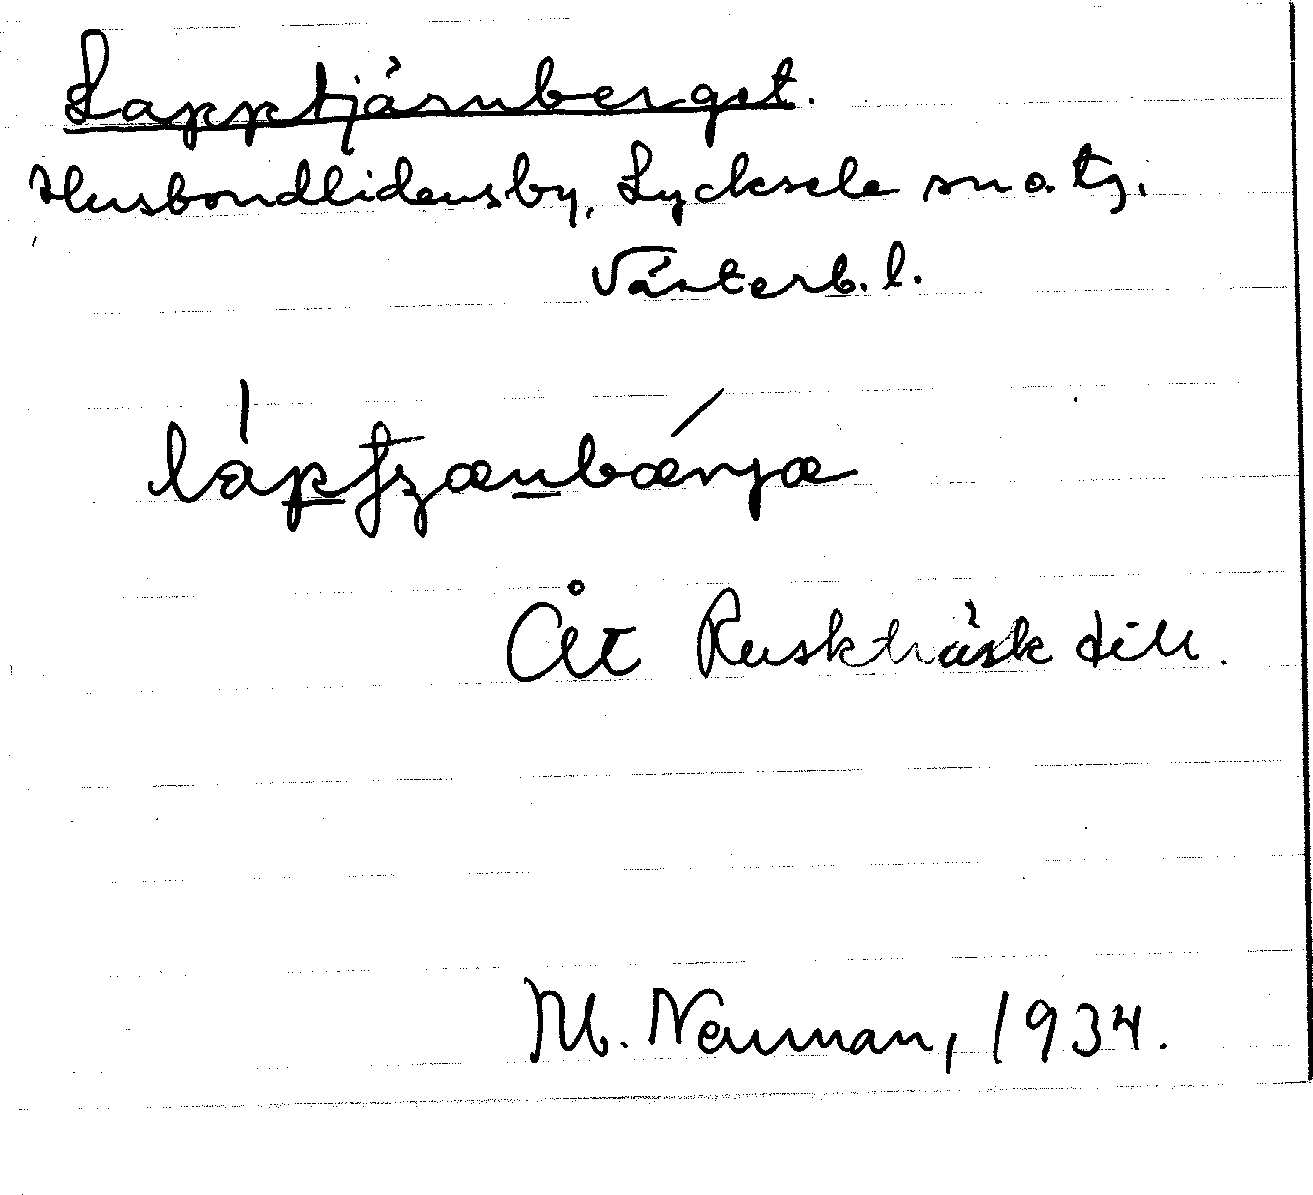 Lapptjärnberget.
Husbondlidens by, Lycksele sn o. tg.
Västerb. l.
Åt Rusksträsk till.
M. Neuman, 1934.